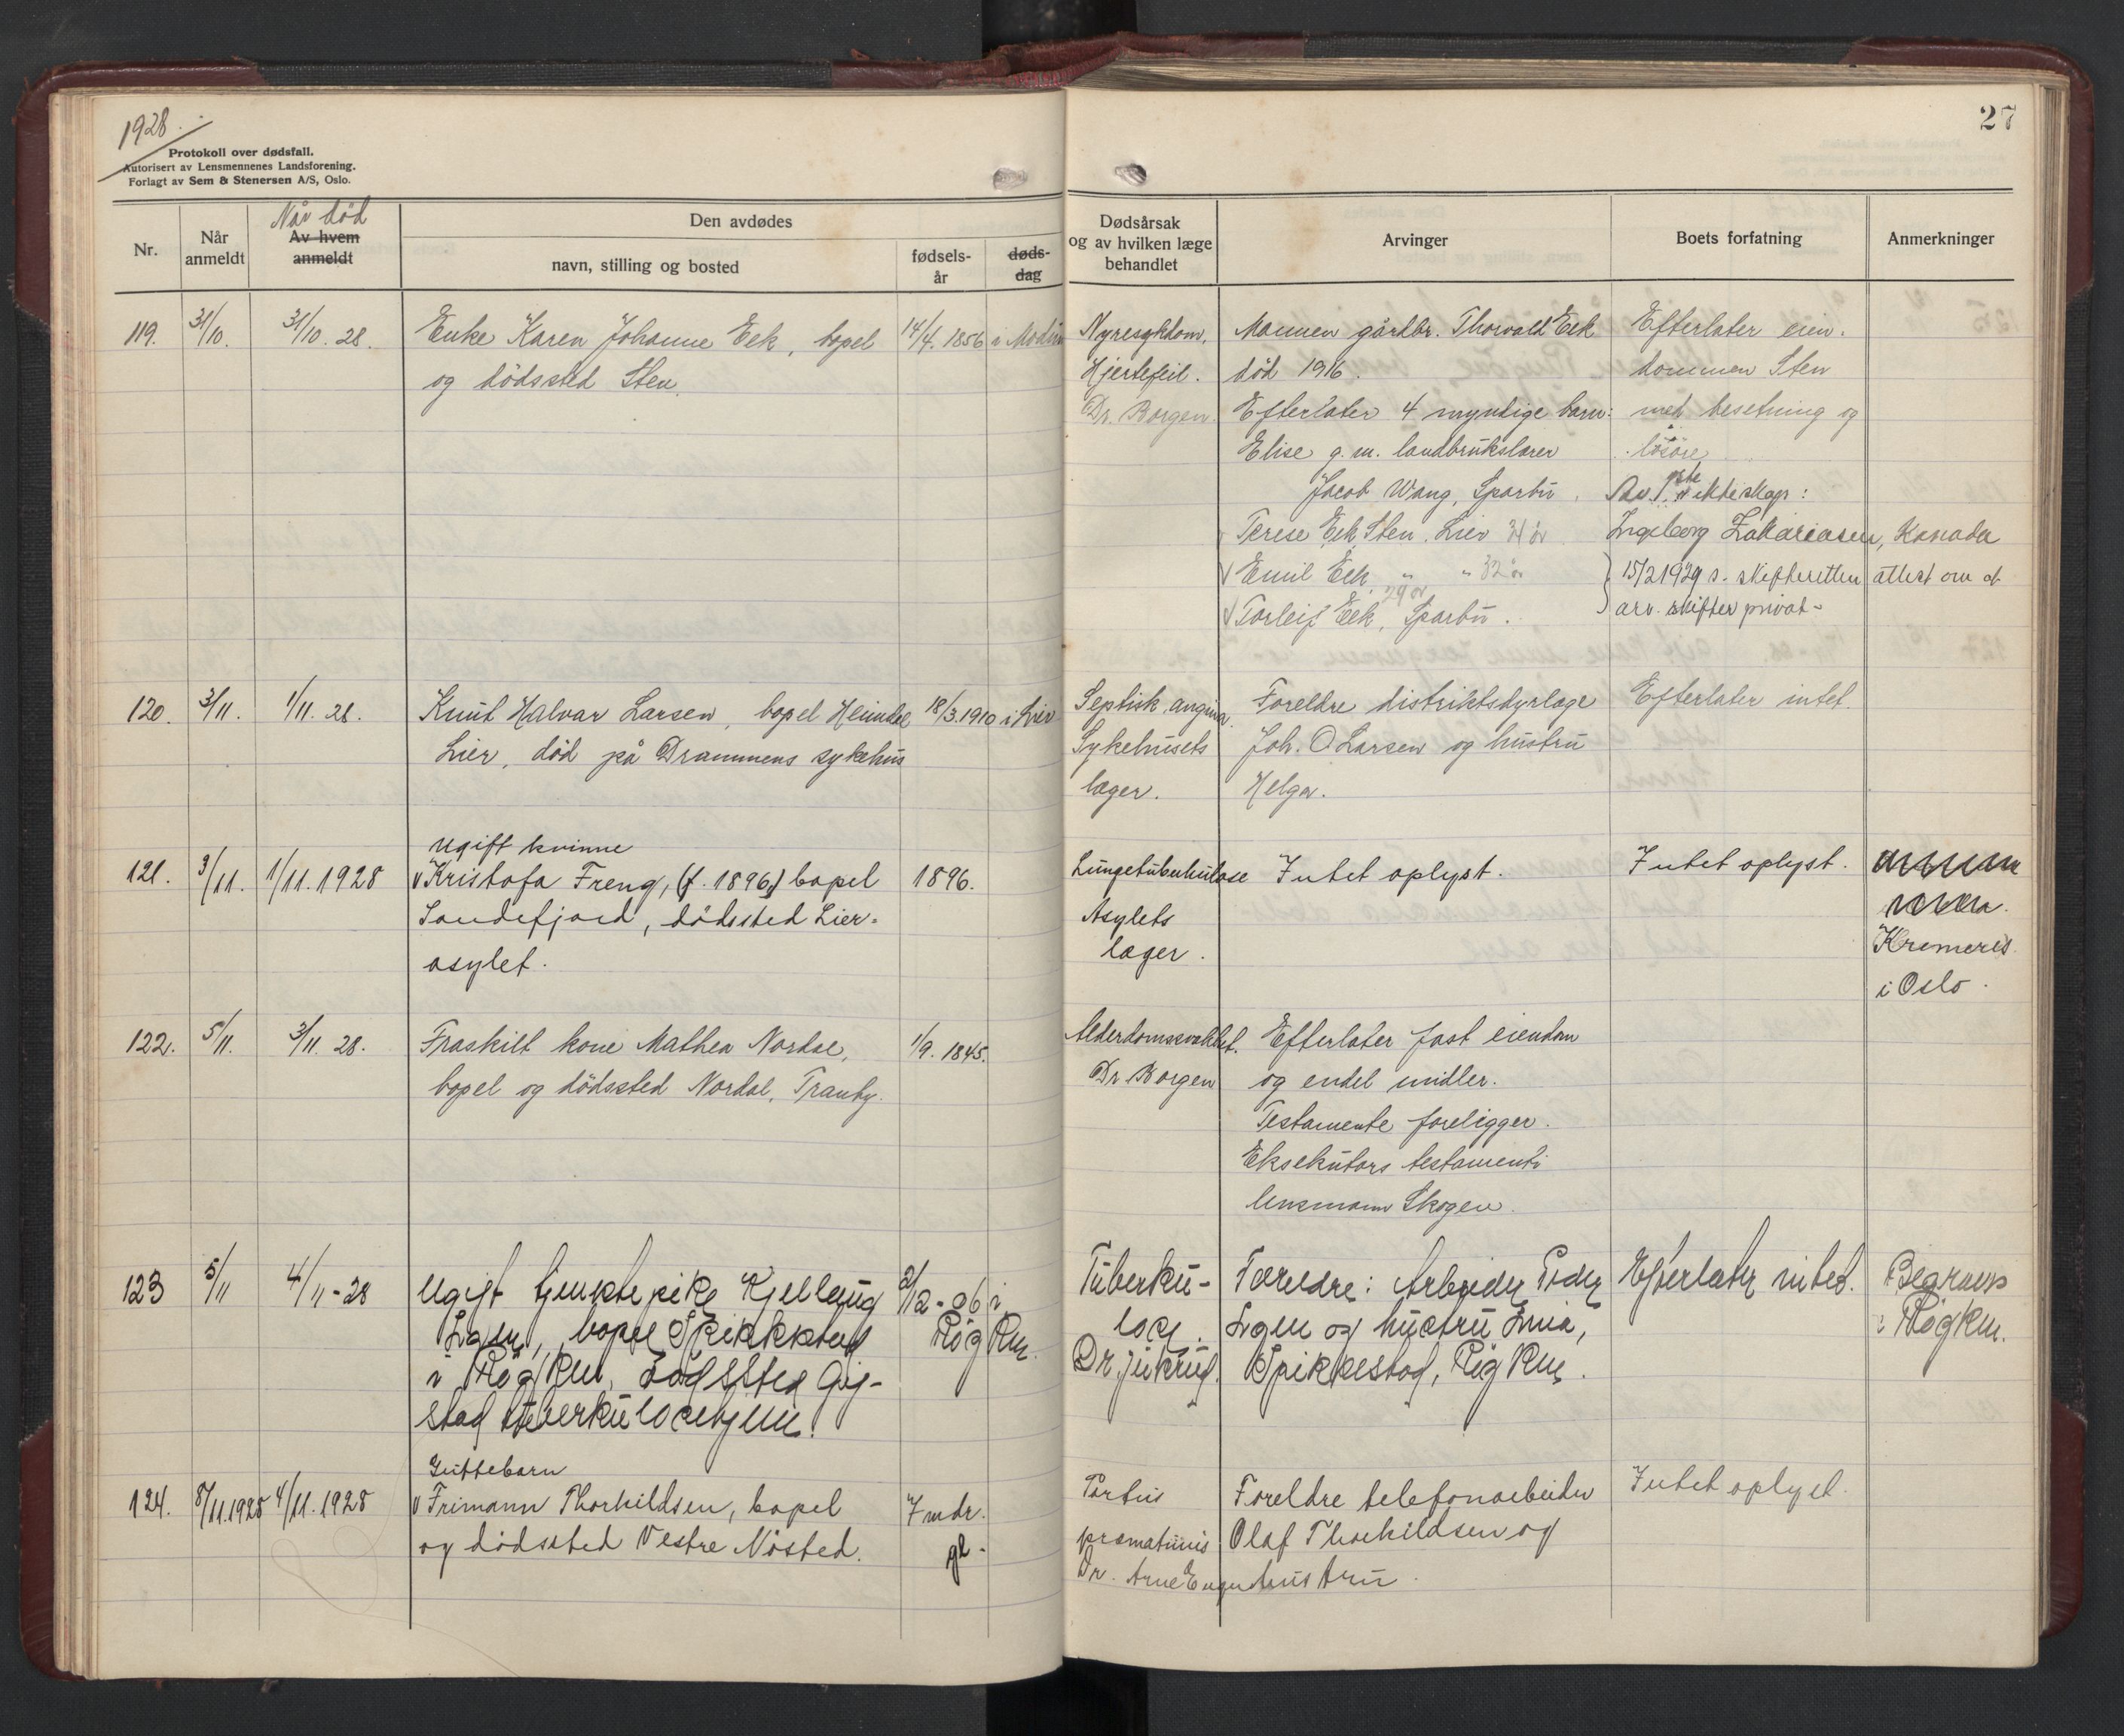 1928
Protokoll over dødsfall.
Autorisert av Lensmennenes Landsforening.
Forlagt av Sem & Stenersen A/S, Oslo.
27
Nr.
Når anmeldt
Når død
Av hvem anmeldt
Den avdødes
navn, stilling og bosted
fødsels-
år
døds-
dag
Dødsårsak
og av hvilken læge
behandlet
Arvinger
Boets forfatning
Anmerkninger
119. 31/10. 31/10. 28. Enke Karen Johanne Eek, bopel 14/4. 1856 i Modum
og dödssted Sten.
Nyresykdom,
Hjertefeil.
Dr. Borgen.
Mannen gårdbr. Thorvald Eek
död 1916.
Efterlater 4 myndige barn:
Elise g. m. landbrukslærer
Jacob Wang, Sparbu.
Terese Eek Sten, Lier 34 år
Emil Eek " " 32 år
29 år
Torleif Eek, Sparbu.
Efterlater eien-
dommen Sten
med besetning og
lösöre
Av 1ste ekteskap:
Ingeborg Zakariasen, Kanada
15/2 1929 s. skifteretten attest om at
arv. skifter privat-
120. 3/11. 1/11. 28. Knut Halvar Larsen, bopel Heimdal 18/3. 1910 i Lier
Lier, död på Drammens sykehus
Septisk angina.
Sykehusets
læger.
Foreldre distriktsdyrlæge
Joh. O Larsen og hustru
Helga.
Efterlater intet.
ugift kvinne
121. 3/11. 1/11. 1928 Kristofa Freng, (f. 1896) bopel 1896.
Sandefjord, dödssted Lier-
asylet.
Lungetuberkulose
Asylets
læger.
Intet oplyst.
Intet oplyst.
Kremeres
i Oslo.
122. 5/11. 3/11. 28. Fraskilt kone Mathea Nordal, 1/9. 1845.
bopel og dödssted Nordal, Tranby.
Alderdomssvakhet.
Dr. Borgen
Efterlater fast eiendom
og endel midler.
Testamente foreligger.
Eksekutors testamenti
lensmann Skogen.
123 5/11 4/11-28 Ugift tjenstepike Kjellaug 2/12-06 i
bopel Spikkestad Røyken.
i Røyken, Dödssted Gjg-
stad tuberkulosehjem.
Tuberku-
lose.
Foreldre: Arbeider Peder
og hustru
Spikkestad, Røyken.
Efterlater intet.
Begraves
i Røyken.
Guttebarn
124. 8/11.1928 4/11. 1928 Frimann Thorkildsen, bopel 7 mdr.
og dödssted Vestre Nøsted. gl.
Partus
prematurus
Dr. Arne Enger
Foreldre telefonarbeider
Olaf Thorkildsen og
hustru.
Intet oplyst.